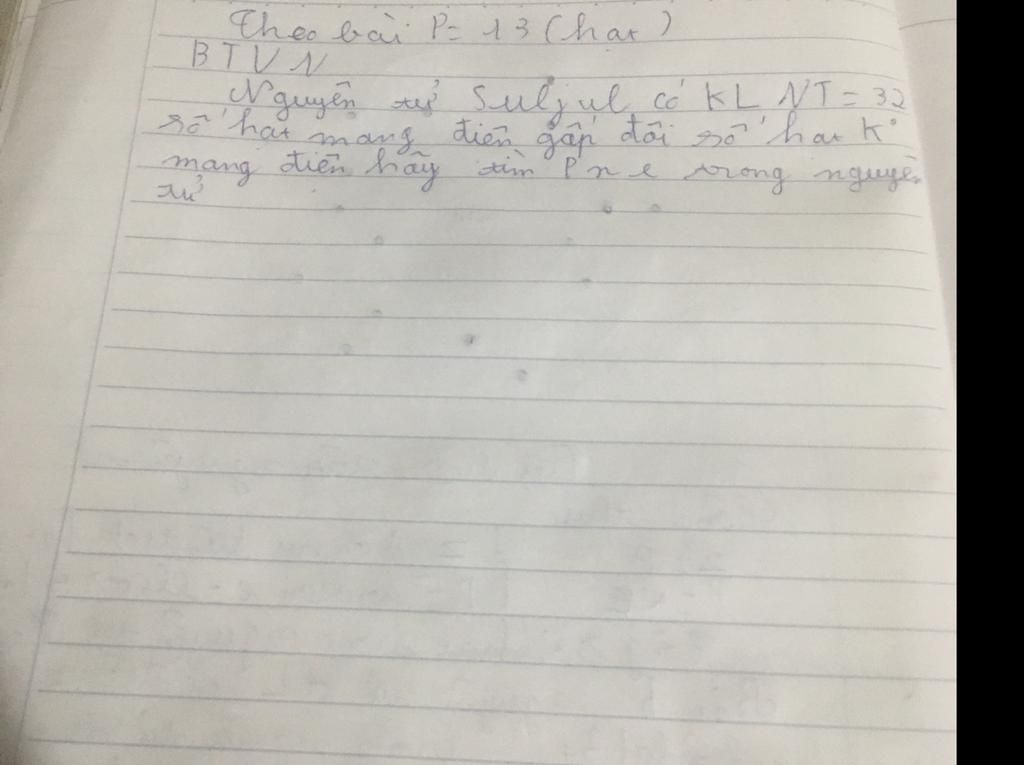 Theo bài P = 13 (hạt)
BTVN
Nguyên tử Suljul có KLNT = 32
số hạt mang điện gấp đôi số hạt K°
mang điện hãy tìm P n e trong nguyên
tử